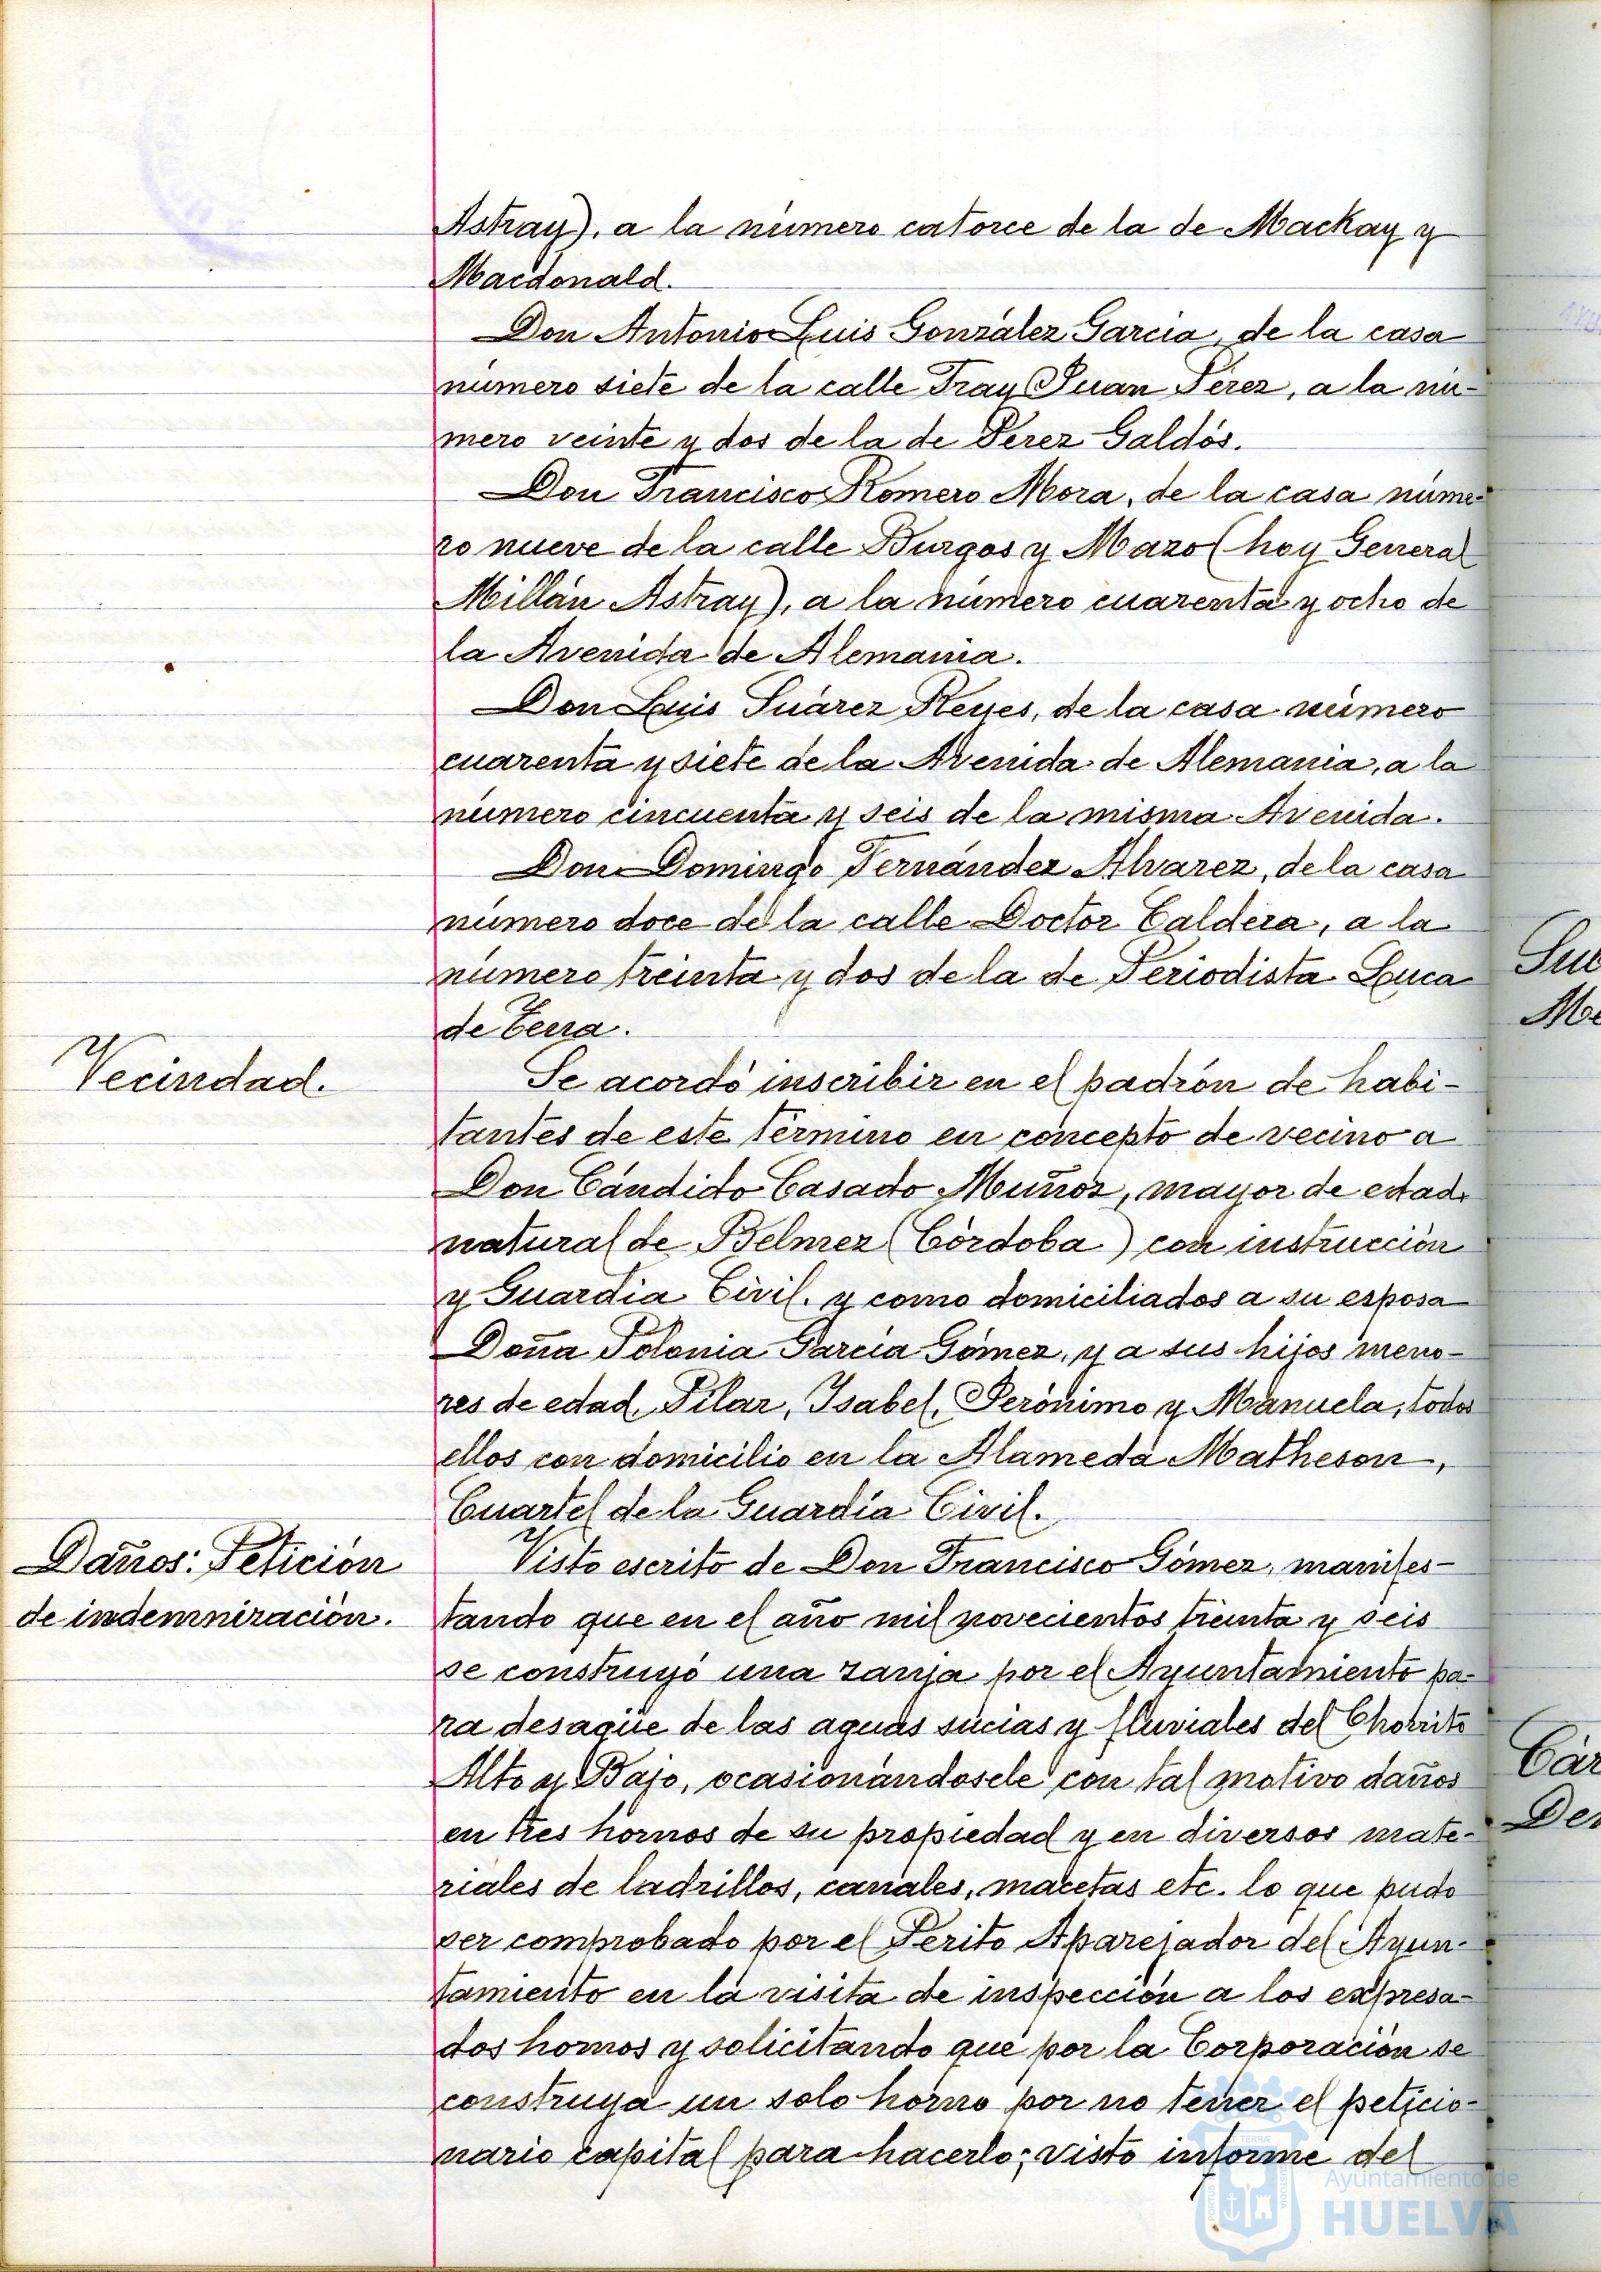 Astray), a la número catorce de la de Mackay y
Macdonald.
Don Antonio Luis González García, de la casa
número siete de la calle Fray Juan Pérez, a la nú-
mero veinte y dos de la de Perez Galdós.
Don Francisco Romero Mora, de la casa núme-
ro nueve de la calle Burgos y Mazo (hoy General
Millán Astray), a la número cuarenta y ocho de
la Avenida de Alemania.
Don Luis Suárez Reyes, de la casa número
cuarenta y siete de la Avenida de Alemania, a la
número cincuenta y seis de la misma Avenida.
Don Domingo Fernández Alvarez, de la casa
número doce de la calle Doctor Caldera, a la
número treinta y dos de la de Periodista Luca
de Tena.
Vecindad.
Se acordó inscribir en el padrón de habi-
tantes de este término en concepto de vecino a
Don Cándido Casado Muñoz, mayor de edad,
natural de Belmez (Córdoba) con instrucción
y Guardia Civil, y como domiciliados a su esposa
Doña Polonia García Gómez, y a sus hijos meno-
res de edad, Pilar, Isabel, Jerónimo y Manuela, todos
ellos con domicilio en la Alameda Matheson,
Cuartel de la Guardia Civil.
Daños: Petición
de indemnización.
Visto escrito de Don Francisco Gómez, manifes-
tando que en el año mil novecientos treinta y seis
se construyó una zanja por el Ayuntamiento pa-
ra desagüe de las aguas sucias y fluviales del Chorrito
Alto y Bajo, ocasionándosele con tal motivo daños
en tres hornos de su propiedad y en diversos mate-
riales de ladrillos, canales, macetas etc. lo que pudo
ser comprobado por el Perito Aparejador del Ayun-
tamiento en la visita de inspección a los expresa-
dos hornos y solicitando que por la Corporación se
construya un solo horno por no tener el peticio-
nario capital para hacerlo; visto informe del
Ayuntamiento de
HUELVA